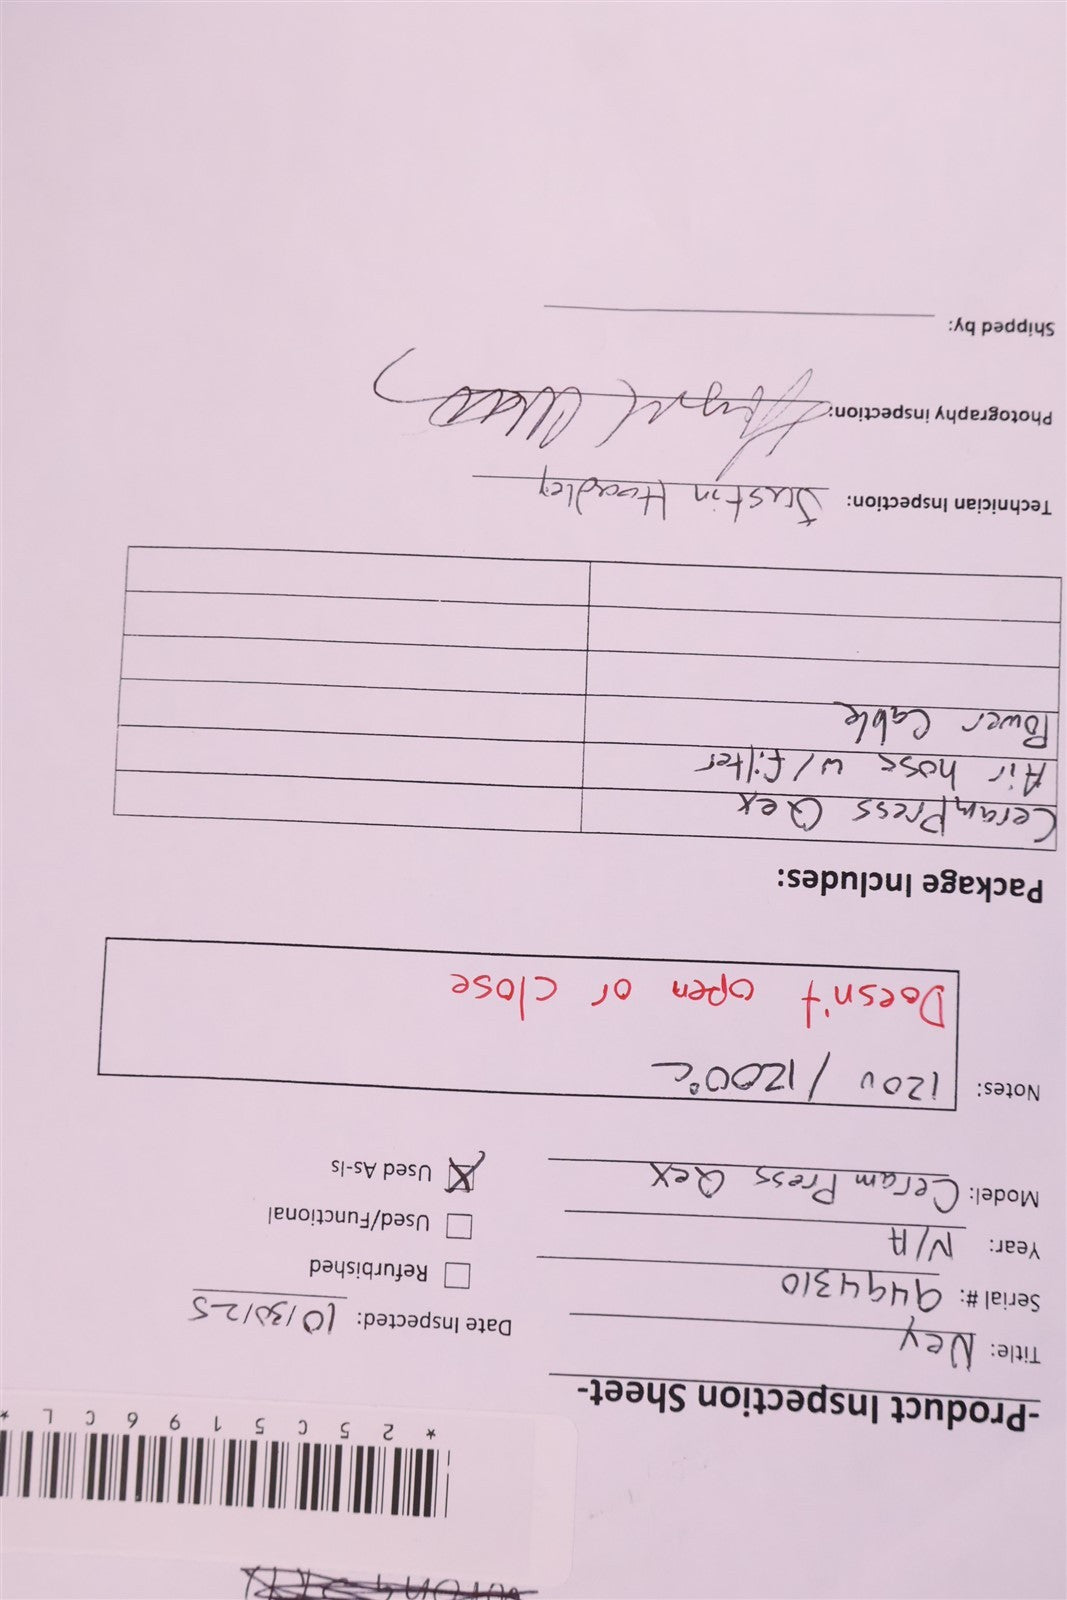 * 2 5 C 5 1 9 6 C L *
-Product Inspection Sheet-
Title: Ney
Date Inspected: 10/30/25
Serial #: 9494310
Refurbished
Year: N/A
Used/Functional
Model: CeramPress Qex
Used As-Is
Notes: 120v / 1200°C
Doesn't open or close
Package Includes:
CeramPress Qex
Air hose w/ filter
Power Cable
Technician Inspection: Justin Hoadley
Photography inspection:
Shipped by: